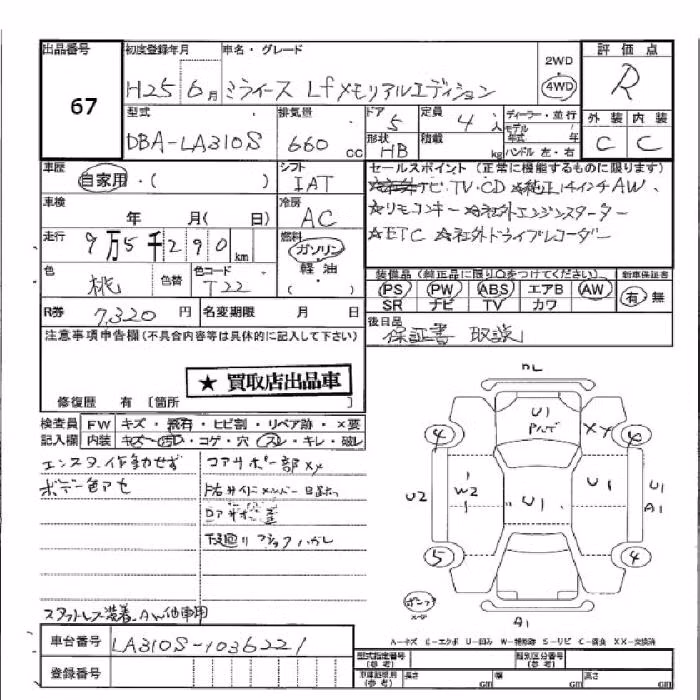 出品番号 初度登録年月 車名・グレード 2WD 評価点
67 H25 6月 ミライース Lfメモリアルエディション 4WD R
型式 排気量 ドア 定員 ディーラー・並行 外装 内装
DBA-LA310S 660cc 5 4人 モデル/年式 年 C C
形状 HB 積載 kg ハンドル 左・右
車歴 自家用・( ) シフト IAT セールスポイント(正常に機能するものに限ります)
ナビ・TV・CD ☆純正14インチAW、
車検 年 月( 日) 冷房 AC ☆リモコンキー ☆社外エンジンスターター
走行 9万5千290km 燃料 ガソリン ☆ETC ☆社外ドライブレコーダー
軽油 ( )
色 桃 色替 色コード T22 装備品(純正品に限り○をつけてください) 新車保証書
PS PW ABS エアB AW 有・無
SR ナビ TV カワ
R券 7,320円 名変期限 月 日 後日品
保証書 取説
注意事項申告欄(不具合内容等は具体的に記入して下さい)
★買取店出品車
修復歴 有 [箇所
検査員 FW キズ・飛石・ヒビ割・リペア跡・×要
記入欄 内装 キズ・汚レ・コゲ・穴・スレ・キレ・破レ
エンスタ作動せず コアサポート部XX
ボデー色アセ
下廻り
スタットレス装着、AW他車用
U1 XX 4 4 U2 W2 U1 U1 U1 A1 5 4 A1
A-キズ E-エクボ U-凹み W-補修跡 S-サビ C-腐食 XX-交換済
車台番号 LA310S-1036221 型式指定番号(参考) 類別区分番号(参考)
登録番号 長さ cm 幅 cm 高さ cm